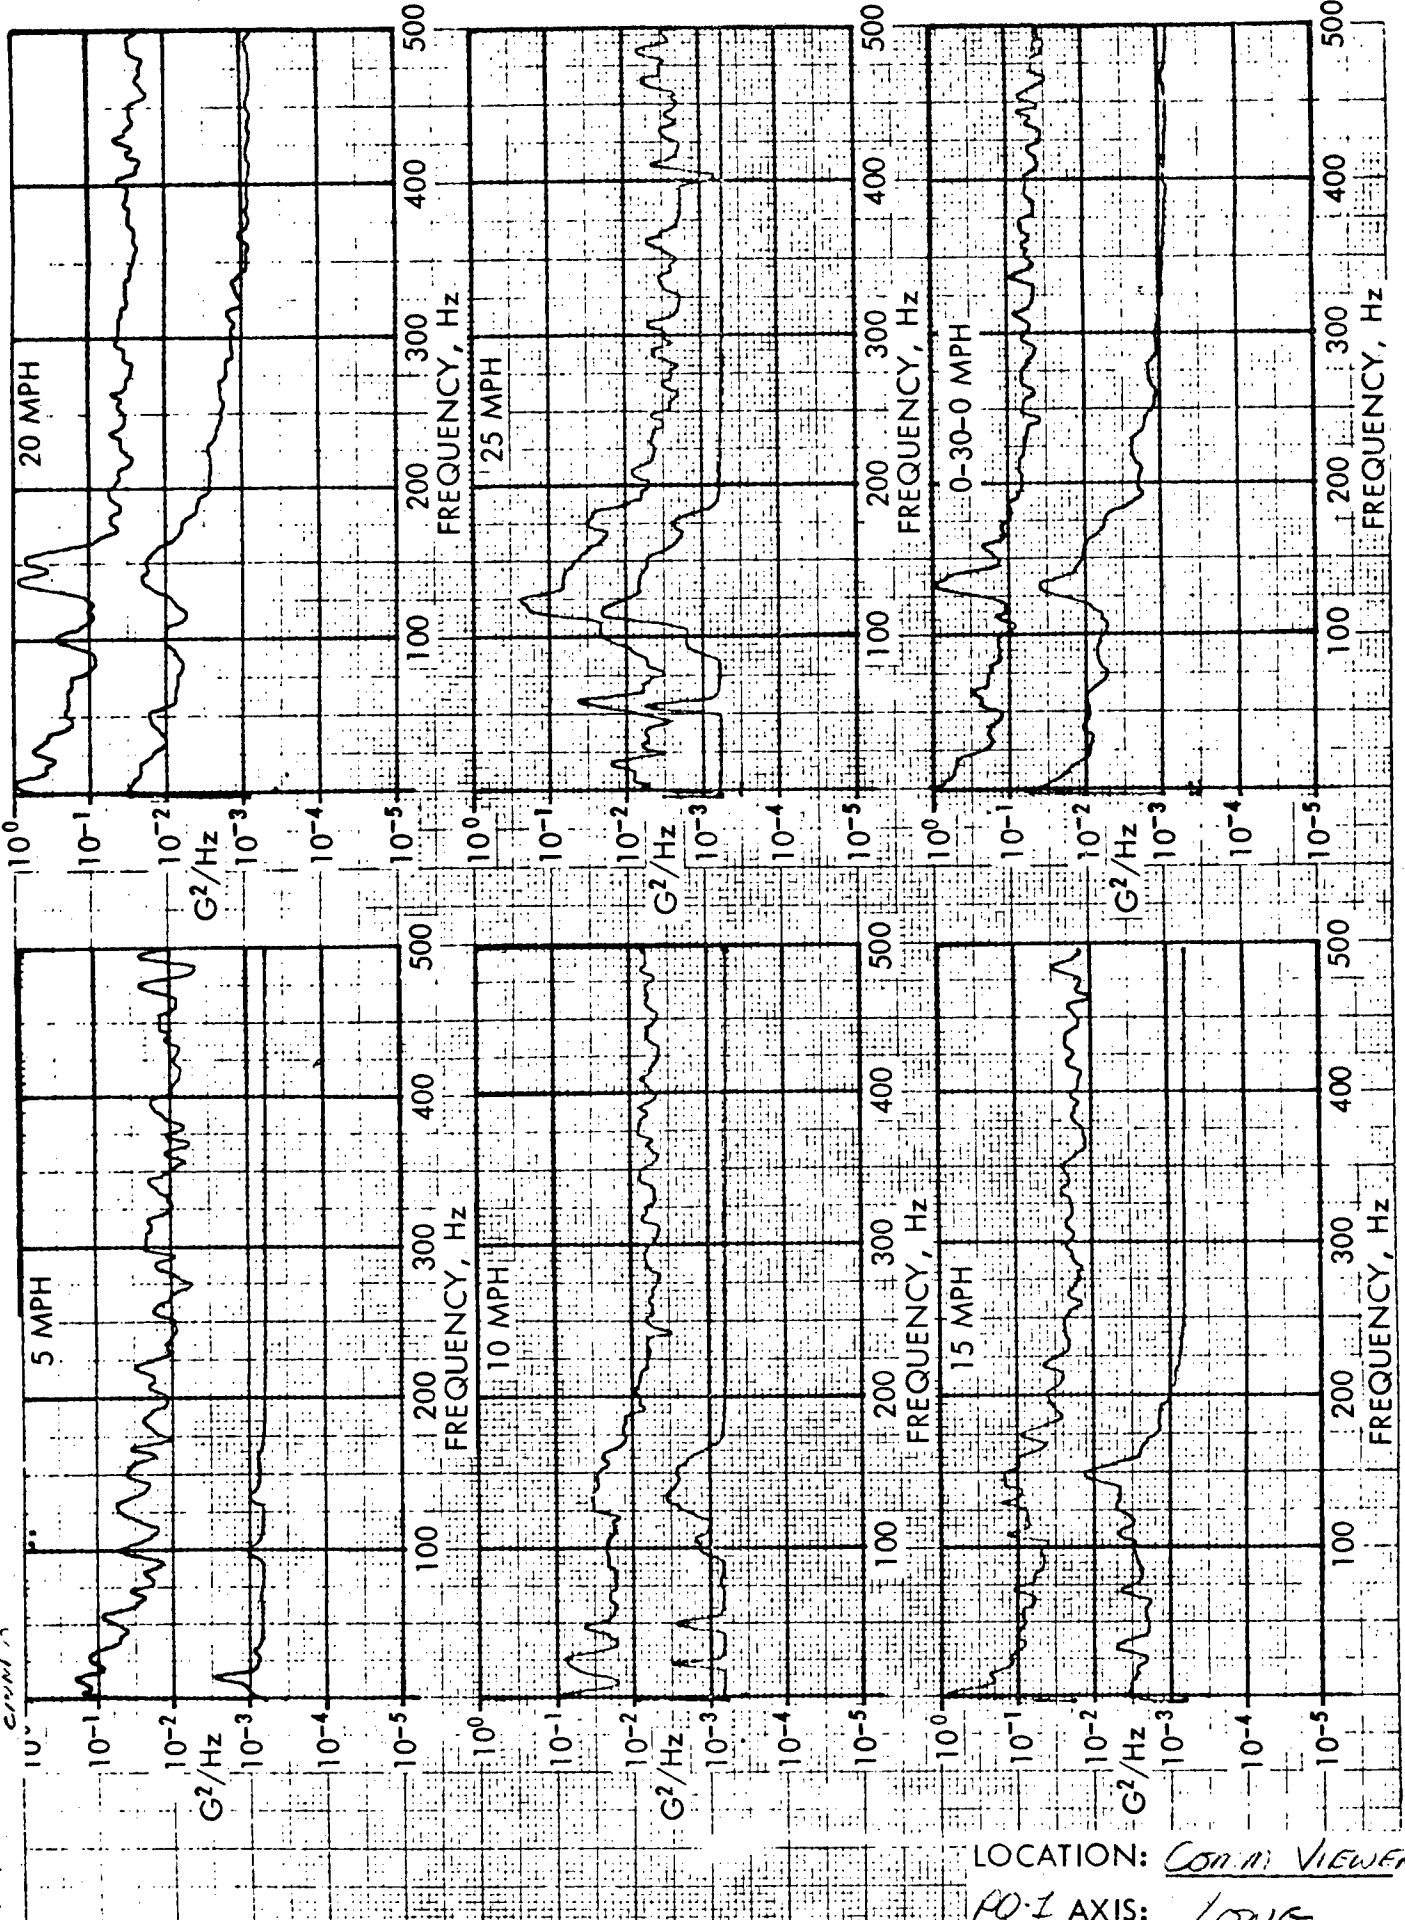 5 MPH
10⁻¹
10⁻²
G²/Hz
10⁻³
10⁻⁴
10⁻⁵
100 200 300 400 500
FREQUENCY, Hz
20 MPH
10⁰
10⁻¹
10⁻²
G²/Hz
10⁻³
10⁻⁴
10⁻⁵
100 200 300 400 500
FREQUENCY, Hz
10 MPH
10⁰
10⁻¹
10⁻²
G²/Hz
10⁻³
10⁻⁴
10⁻⁵
100 200 300 400 500
FREQUENCY, Hz
25 MPH
10⁰
10⁻¹
10⁻²
G²/Hz
10⁻³
10⁻⁴
10⁻⁵
100 200 300 400 500
FREQUENCY, Hz
15 MPH
10⁰
10⁻¹
10⁻²
G²/Hz
10⁻³
10⁻⁴
10⁻⁵
100 200 300 400 500
FREQUENCY, Hz
0-30-0 MPH
10⁰
10⁻¹
10⁻²
G²/Hz
10⁻³
10⁻⁴
10⁻⁵
100 200 300 400 500
FREQUENCY, Hz
LOCATION: VIEWER
AXIS: LONG